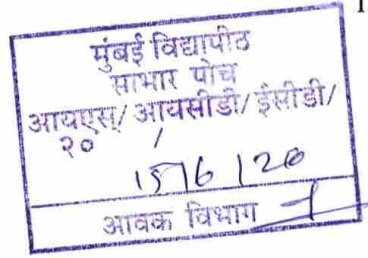 मुंबई विद्यापीठ
साभार पोच
आयएस/ आयसीडी/ ईसीडी/
२० /
15/6/20
आवक विभाग